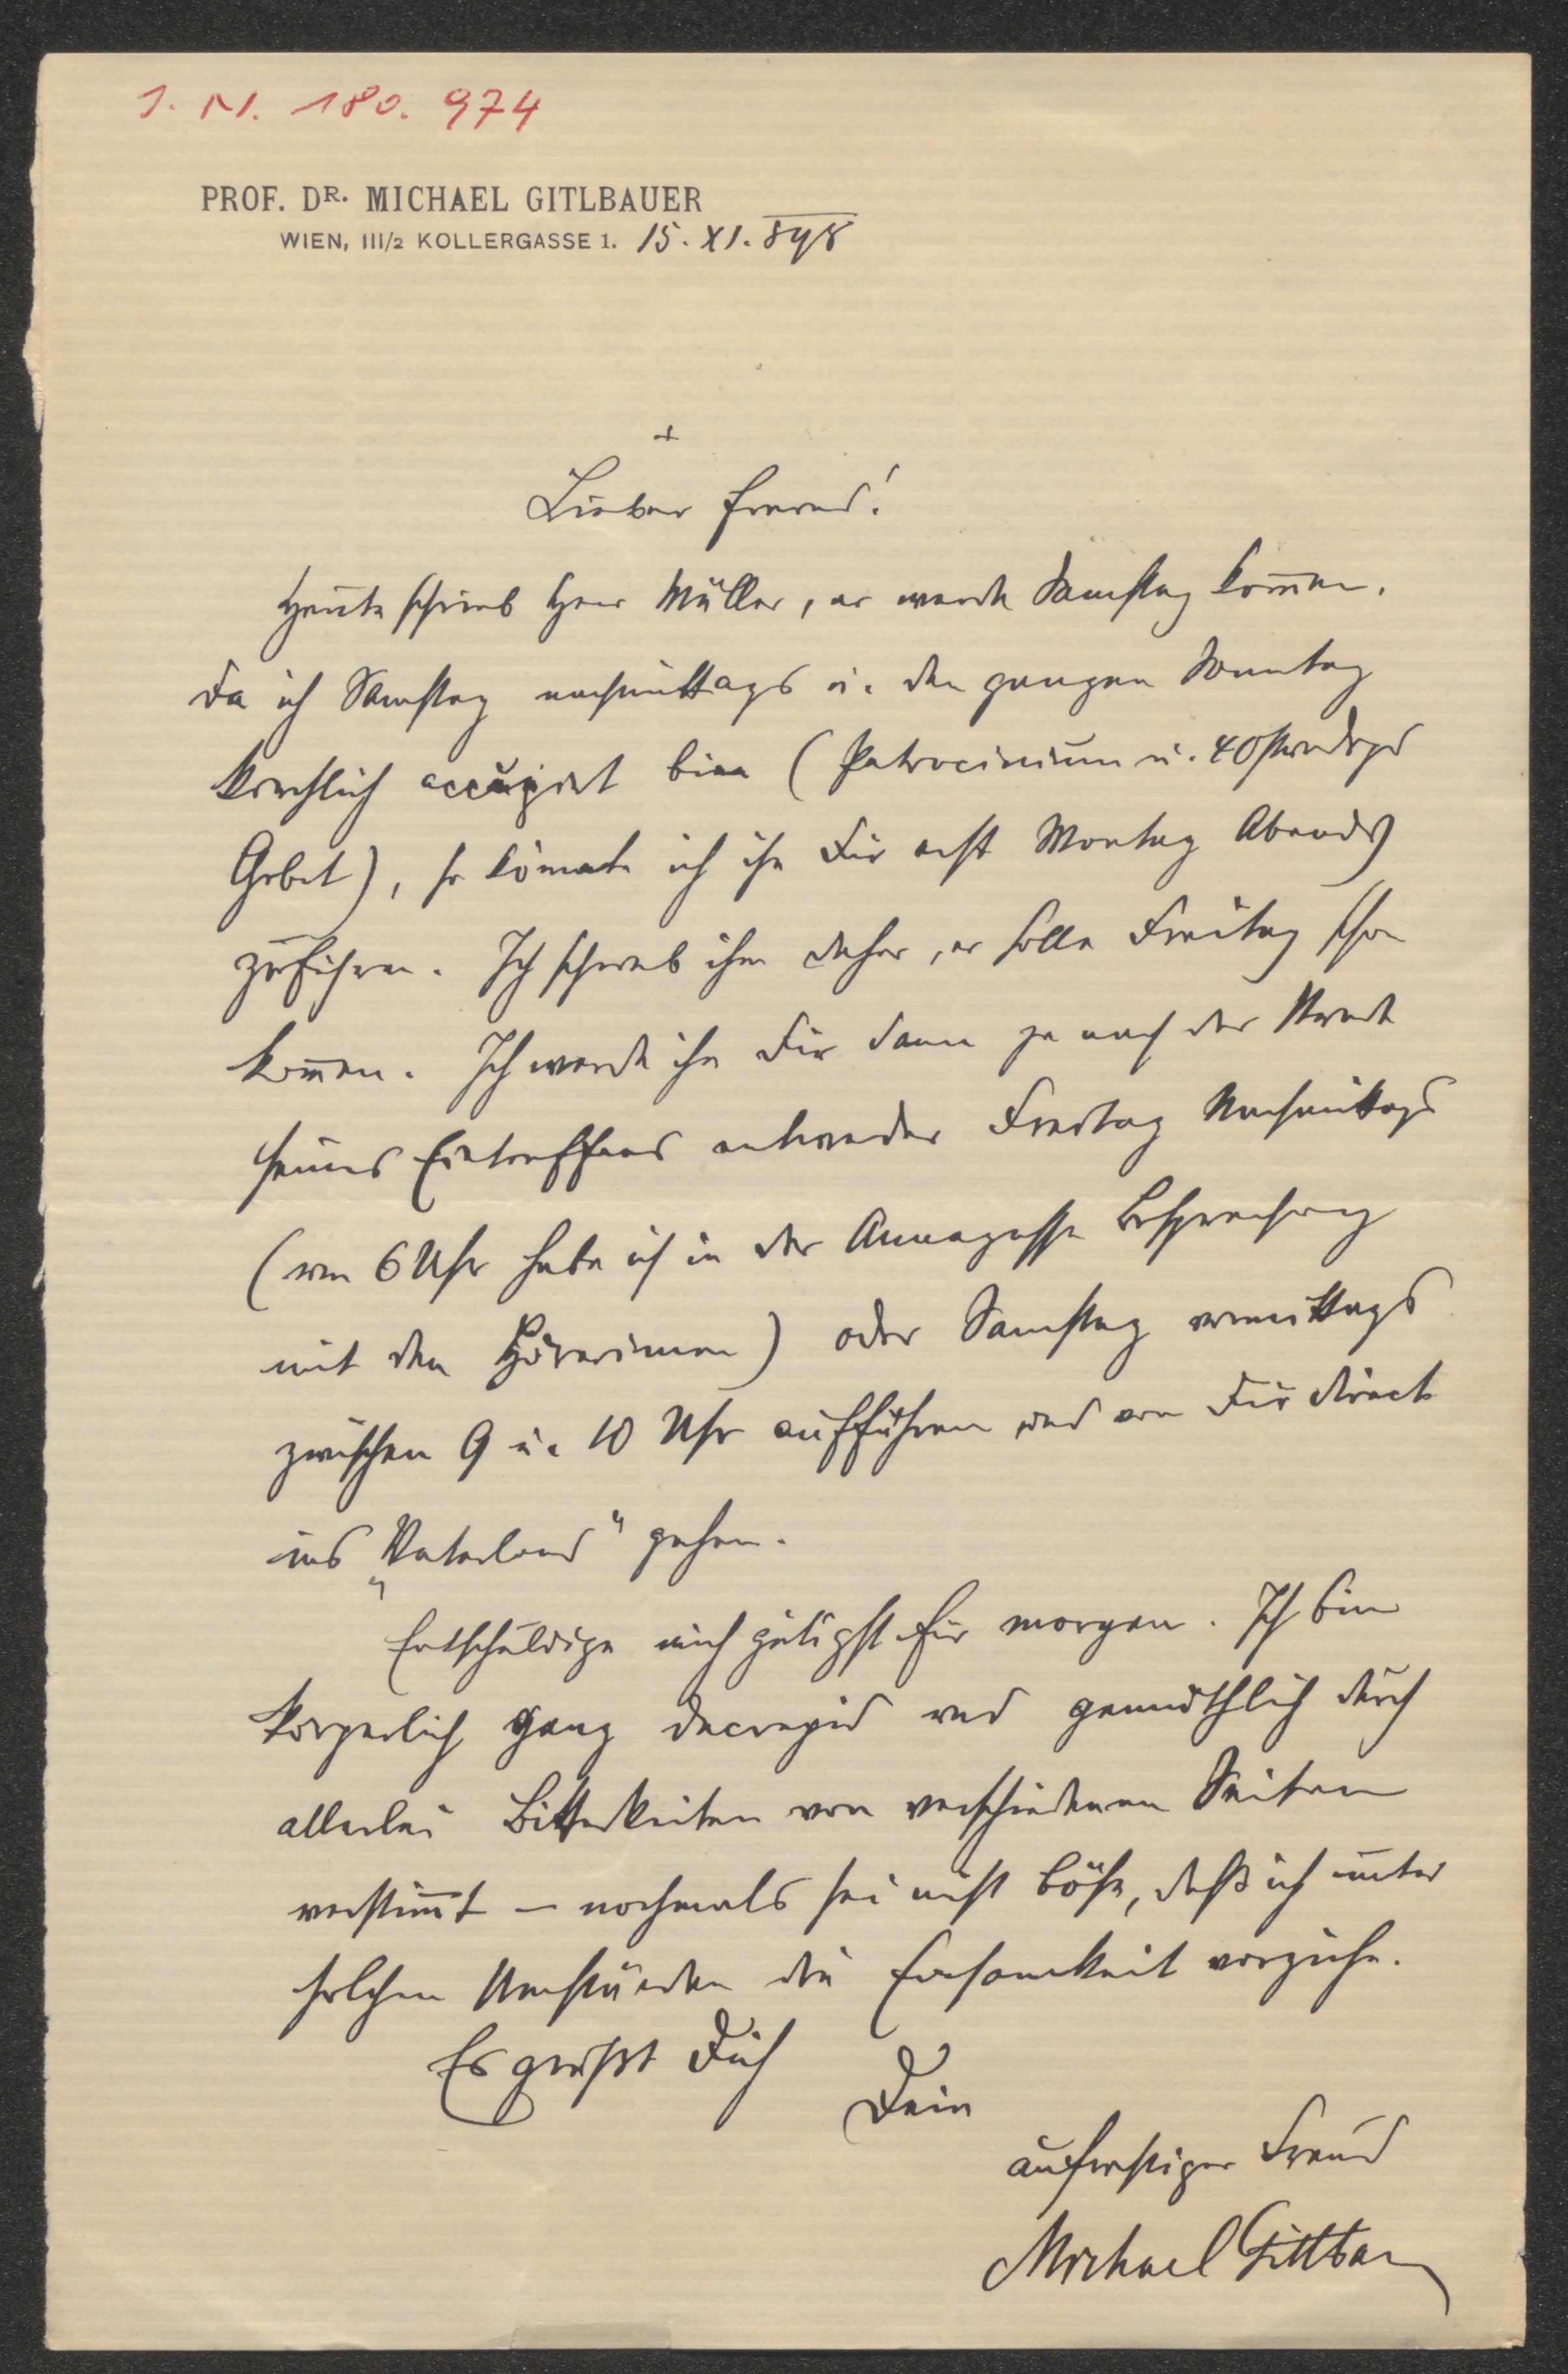 I. N. 180.974
PROF. DR. MICHAEL GITLBAUER
WIEN, III/2 KOLLERGASSE 1. 15. XI. 898
+
Lieber Freund!
Heute schrieb Herr Müller, er werde Samstag kom̄en.
Da ich Samstag nachmittags u. den ganzen Sonntag
kirchlich occupirt bin (Patrocinium u. 40stündiges
Gebet), so könnte ich ihn Dir erst Montag Abends
zuführen. Ich schrieb ihm daher, er solle Freitag schon
kom̄en. Ich werde ihn Dir dann je nach der Stunde
seines Eintreffens entweder Freitag Nachmittags
(um 6 Uhr habe ich in der Annagasse Besprechung
mit den Hörerinnen) oder Samstag vormittags
zwischen 9 u. 10 Uhr aufführen und von Dir direct
ins „Vaterland“ gehen.
Entschuldige mich gütigst für morgen. Ich bin
körperlich ganz decrepid und gemüthlich durch
allerlei Bitterkeiten von verschiedenen Seiten
verstim̄t – nochmals sei nicht böse, daß ich unter
solchen Umständen die Einsamkeit vorziehe.
Es grüßt Dich
Dein
aufrichtiger Freund
Michael Gitlbauer